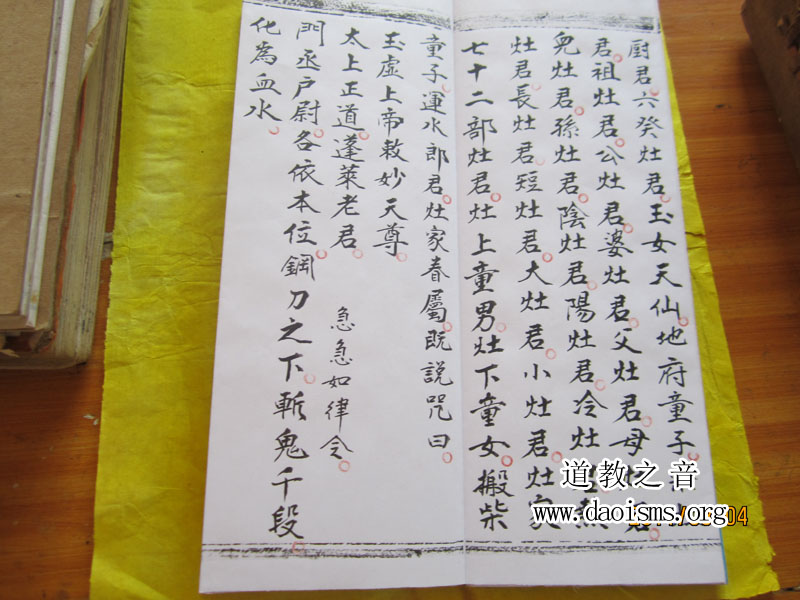 厨君六癸灶君玉女天仙地府童子
君祖灶君公灶君婆灶君父灶君母君
兒灶君孫灶君陰灶君陽灶君冷灶
灶君長灶君短灶君大灶君小灶君灶家
七十二部灶君灶上童男灶下童女搬柴
童子運水郎君灶家春屬既說咒曰
玉虛上帝敕妙天尊
太上正道蓬萊老君 急急如律令
門丞户尉各依本位鋼刀之下斬鬼千段
化為血水
道教之音
www.daoisms.org
04